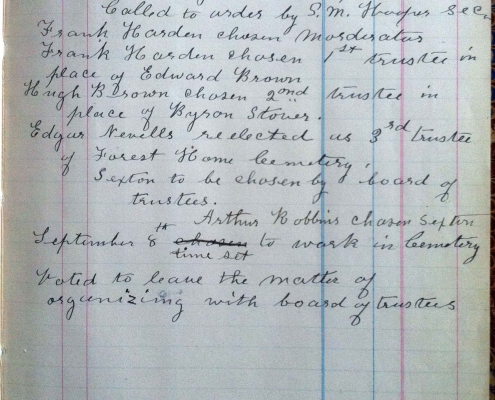 Called to order by S. M. Hooper Sec
Frank Harden chosen Morderator
Frank Harden chosen 1st trustee in
place of Edward Brown
Hugh Brown chosen 2nd trustee in
place of Byron Stover.
Edgar Nevells reelected as 3rd trustee
of Forest Home Cemetery.
Sexton to be chosen by board of
trustees.
Arthur Robbins chosen Sexton
September 8th chosen to work in Cemetery
time set
Voted to leave the matter of
organizing with board of trustees